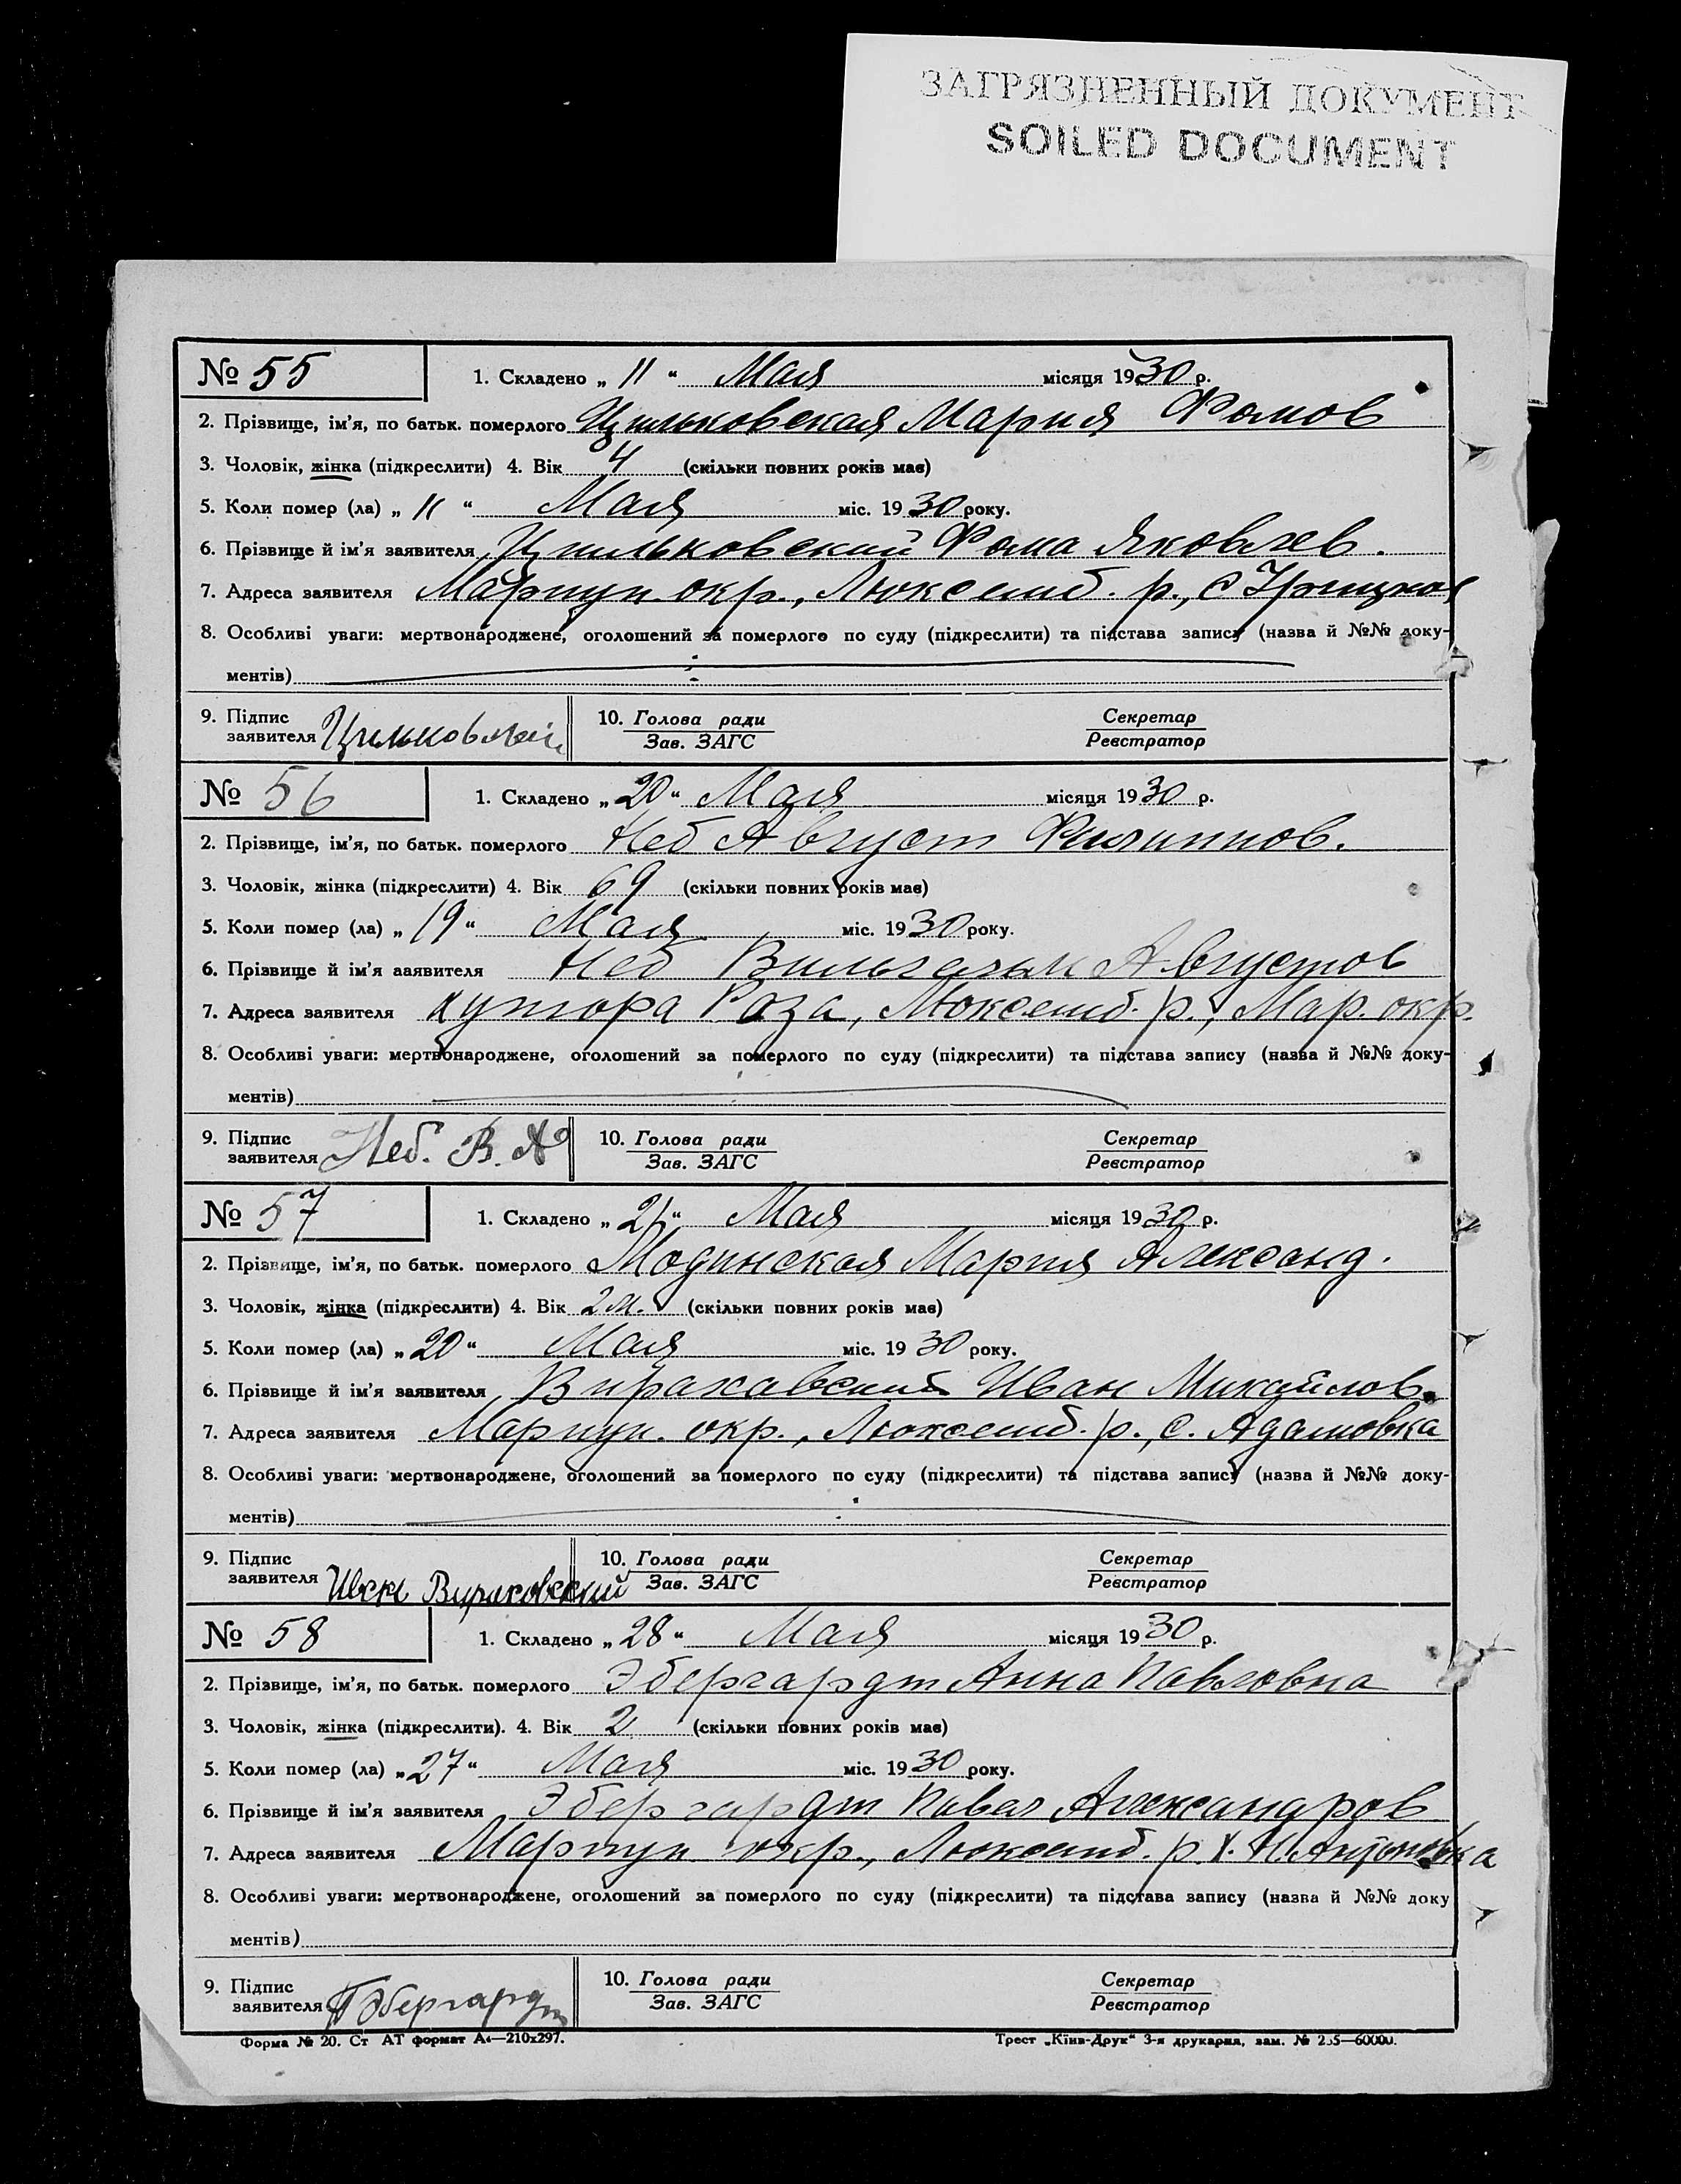 ЗАГРЯЗНЕННЫЙ ДОКУМЕНТ
SOILED DOCUMENT
№ 55 1. Складено „ 11 “ Мая місяця 1930 р.
2. Прізвище, ім'я, по батьк. померлого Цильковская Мария Фомов
3. Чоловік, жінка (підкреслити) 4. Вік 4 (скільки повних років має)
5. Коли помер (ла) „ 11 “ Мая міс. 1930 року.
6. Прізвище й ім'я заявителя Цильковский Фома Яковлев.
7. Адреса заявителя Мариуп окр., Люксемб. р., с
8. Особливі уваги: мертвонароджене, оголошений за померлого по суду (підкреслити) та підстава запису (назва й №№ доку-
ментів)
9. Підпис заявителя Цильковский 10. Голова ради Секретар
Зав. ЗАГС Реєстратор
№ 56 1. Складено „ 20 “ Мая місяця 1930 р.
2. Прізвище, ім'я, по батьк. померлого Неб Август Филиппов.
3. Чоловік, жінка (підкреслити) 4. Вік 69 (скільки повних років має)
5. Коли помер (ла) „ 19 “ Мая міс. 1930 року.
6. Прізвище й ім'я ааявителя Неб Вильгельм Августов
7. Адреса заявителя хутора Роза, Люксемб. р., Мар. окр.
8. Особливі уваги: мертвонароджене, оголошений за померлого по суду (підкреслити) та підстава запису (назва й №№ доку-
ментів)
9. Підпис заявителя Неб. В. А 10. Голова ради Секретар
Зав. ЗАГС Реєстратор
№ 57 1. Складено „ 21 “ Мая місяця 1930 р.
2. Прізвище, ім'я, по батьк. померлого Модинская Мария Александ.
3. Чоловік, жінка (підкреслити) 4. Вік 2 м. (скільки повних років має)
5. Коли помер (ла) „ 20 “ Мая міс. 1930 року.
6. Прізвище й ім'я заявителя Вираховский Иван Михайлов.
7. Адреса заявителя Мариуп. окр., Люксемб. р., с. Адамовка
8. Особливі уваги: мертвонароджене, оголошений за померлого по суду (підкреслити) та підстава запису (назва й №№ доку-
ментів)
9. Підпис заявителя Иван Вираховский 10. Голова ради Секретар
Зав. ЗАГС Реєстратор
№ 58 1. Складено „ 28 “ Мая місяця 1930 р.
2. Прізвище, ім'я, по батьк. померлого Эбергардт Анна Павловна
3. Чоловік, жінка (підкреслити). 4. Вік 2 (скільки повних років має)
5. Коли помер (ла) „ 27 “ Мая міс. 1930 року.
6. Прізвище й ім'я заявителя Эбергардт Павел Александров
7. Адреса заявителя Мариуп окр., Люксемб. р. х. Н. Антоновка
8. Особливі уваги: мертвонароджене, оголошений за померлого по суду (підкреслити) та підстава запису (назва й №№ доку
ментів)
9. Підпис заявителя П Эбергардт 10. Голова ради Секретар
Зав. ЗАГС Реєстратор
Форма № 20. Ст АТ формат А4—210х297. Трест „Київ-Друк“ 3-я друкарня, зам. № 255—60000.